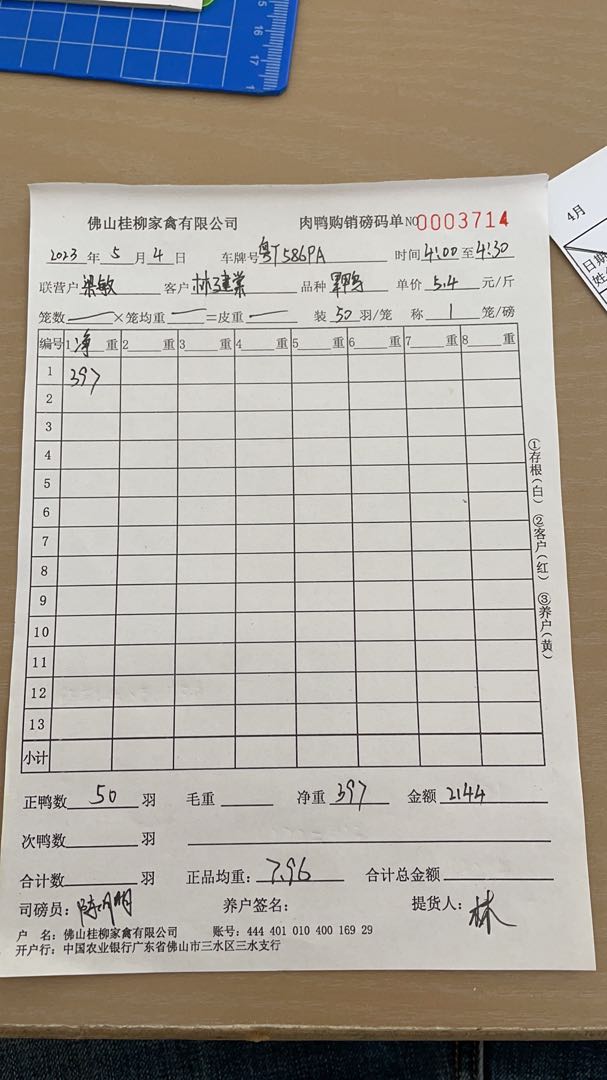 佛山桂柳家禽有限公司 肉鸭购销磅码单 NO 0003714
2023 年 5 月 4 日 车牌号 粤T586PA 时间 4:00 至 4:30
联营户 梁敏 客户 林建棠 品种 单价 5.4 元/斤
笼数 — ×笼均重 — =皮重 — 装 50 羽/笼 称 1 笼/磅
编号 1 净 重 2 重 3 重 4 重 5 重 6 重 7 重 8 重
1 397
2
3
4
5
6
7
8
9
10
11
12
13
小计
①存根(白) ②客户(红) ③养户(黄)
正鸭数 50 羽 毛重 净重 397 金额 2144
次鸭数 羽
合计数 羽 正品均重: 7.96 合计总金额
司磅员: 陈 明 养户签名: 提货人: 林
户 名: 佛山桂柳家禽有限公司 账号: 444 401 010 400 169 29
开户行: 中国农业银行广东省佛山市三水区三水支行
4月
日期
15
16
17